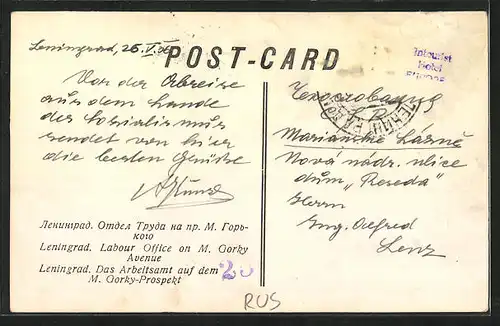 Leningrad, 26.V.36
POST-CARD
Intourist
Hotel
Vor der Abreise
aus dem Lande
des Sozialismus
sendet von hier
die besten Grüsse
Ленинград. Отдел Труда на пр. М. Горь-
кого
Leningrad. Labour Office on M. Gorky
Avenue
Leningrad. Das Arbeitsamt auf dem
M. Gorky-Prospekt
20
Č.S.R.
Mariánské Lázně
Nová nádr. ulice
dům „Reseda"
Herrn
Ing. Alfred
Lenz
RUS